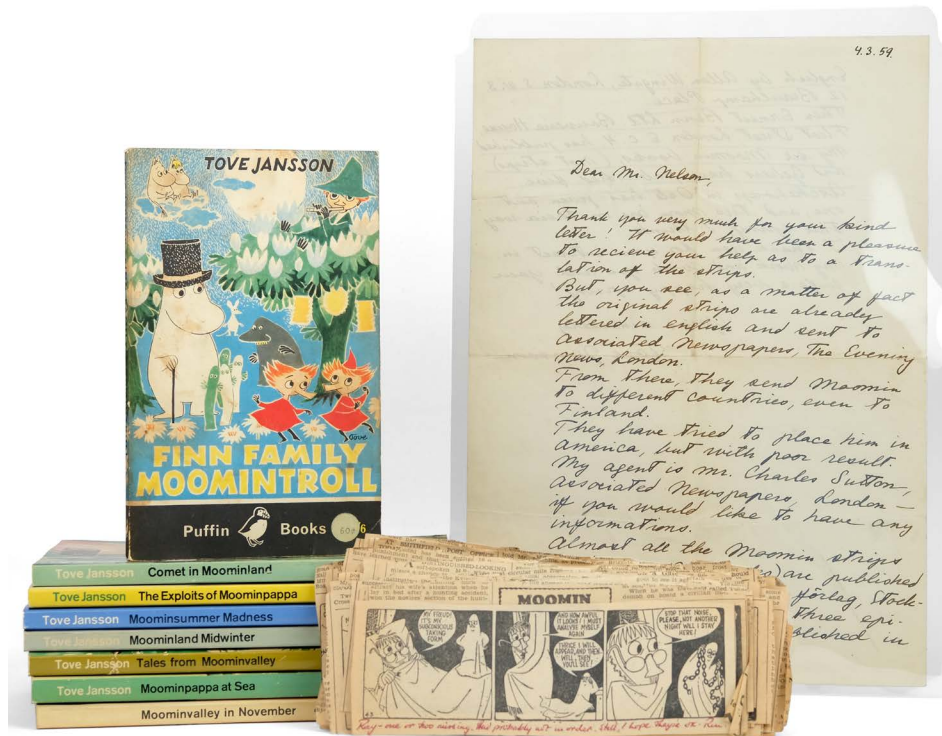 TOVE JANSSON
FINN FAMILY
MOOMINTROLL
Puffin Books
Tove Jansson Comet in Moominland
Tove Jansson The Exploits of Moominpappa
Tove Jansson Moominsummer Madness
Tove Jansson Moominland Midwinter
Tove Jansson Tales from Moominvalley
Tove Jansson Moominpappa at Sea
Moominvalley in November
4.3.59.
Dear Mr. Nelson,
Thank you very much for your kind
letter! It would have been a pleasure
to recieve your help as to a trans-
lation of the strips.
But, you see, as a matter of fact
the original strips are already
lettered in english and sent to
Associated Newspapers, The Evening
News, London.
From there, they send Moomin
to different countries, even to
Finland.
They have tried to place him in
America, but with poor result.
My agent is mr. Charles Sutton,
Associated Newspapers, London –
if you would like to have any
informations.
Almost all the Moomin strips
are published
förlag, Stock-
three epi-
blished in
MOOMIN
MY FRIEND,
IT'S MY
TAKING
FORM
AND HOW AWFUL
IT LOOKS! I MUST
ANALYSE MYSELF
AGAIN
TWICE I WILL
APPEAR, AND THEN
WELL, THEN
YOU'LL SEE
STOP THAT NOISE,
PLEASE, NOT ANOTHER
NIGHT WILL I STAY
HERE!
Kay - one or two missing, and probably not in order. Still, I hope they're ok -